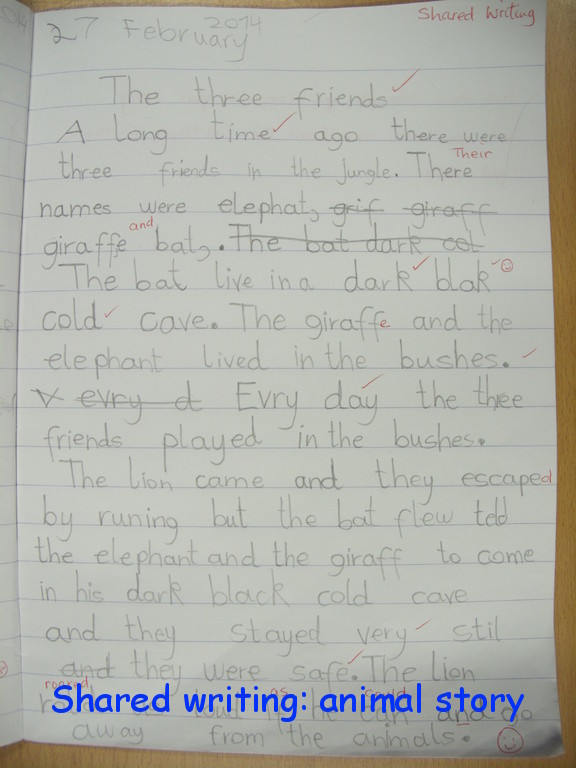 Shared Writing
27 February 2014
The three friends
A long time ago there were
three friends in the jungle. There
Their
names were elephat, grif giraff
and
giraffe bat,. The bat dark col
The bat live in a dark blak
cold cave. The giraffe and the
elephant lived in the bushes.
evry d Evry day the three
friends played in the bushes.
The lion came and they escaped
by runing but the bat flew told
the elephant and the giraff to come
in his dark black cold cave
and they stayed very stil
and they were safe. The lion
roared
as could
Shared writing: animal story
he can and go
away from the animals.